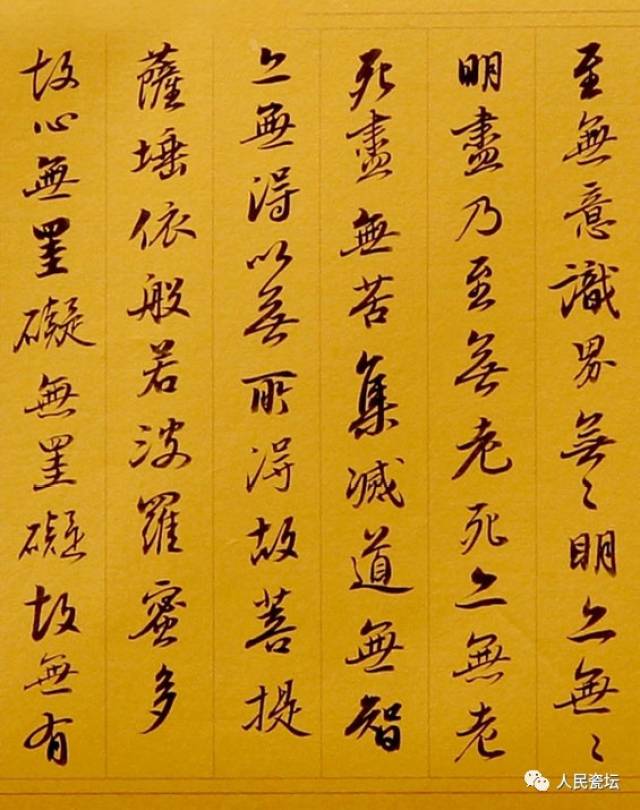 至無意識界無〻明亦無〻
明盡乃至無老死亦無老
死盡無苦集滅道無智
亦無得以無所得故菩提
薩埵依般若波羅蜜多
故心無罣礙無罣礙故無有
人民瓷坛